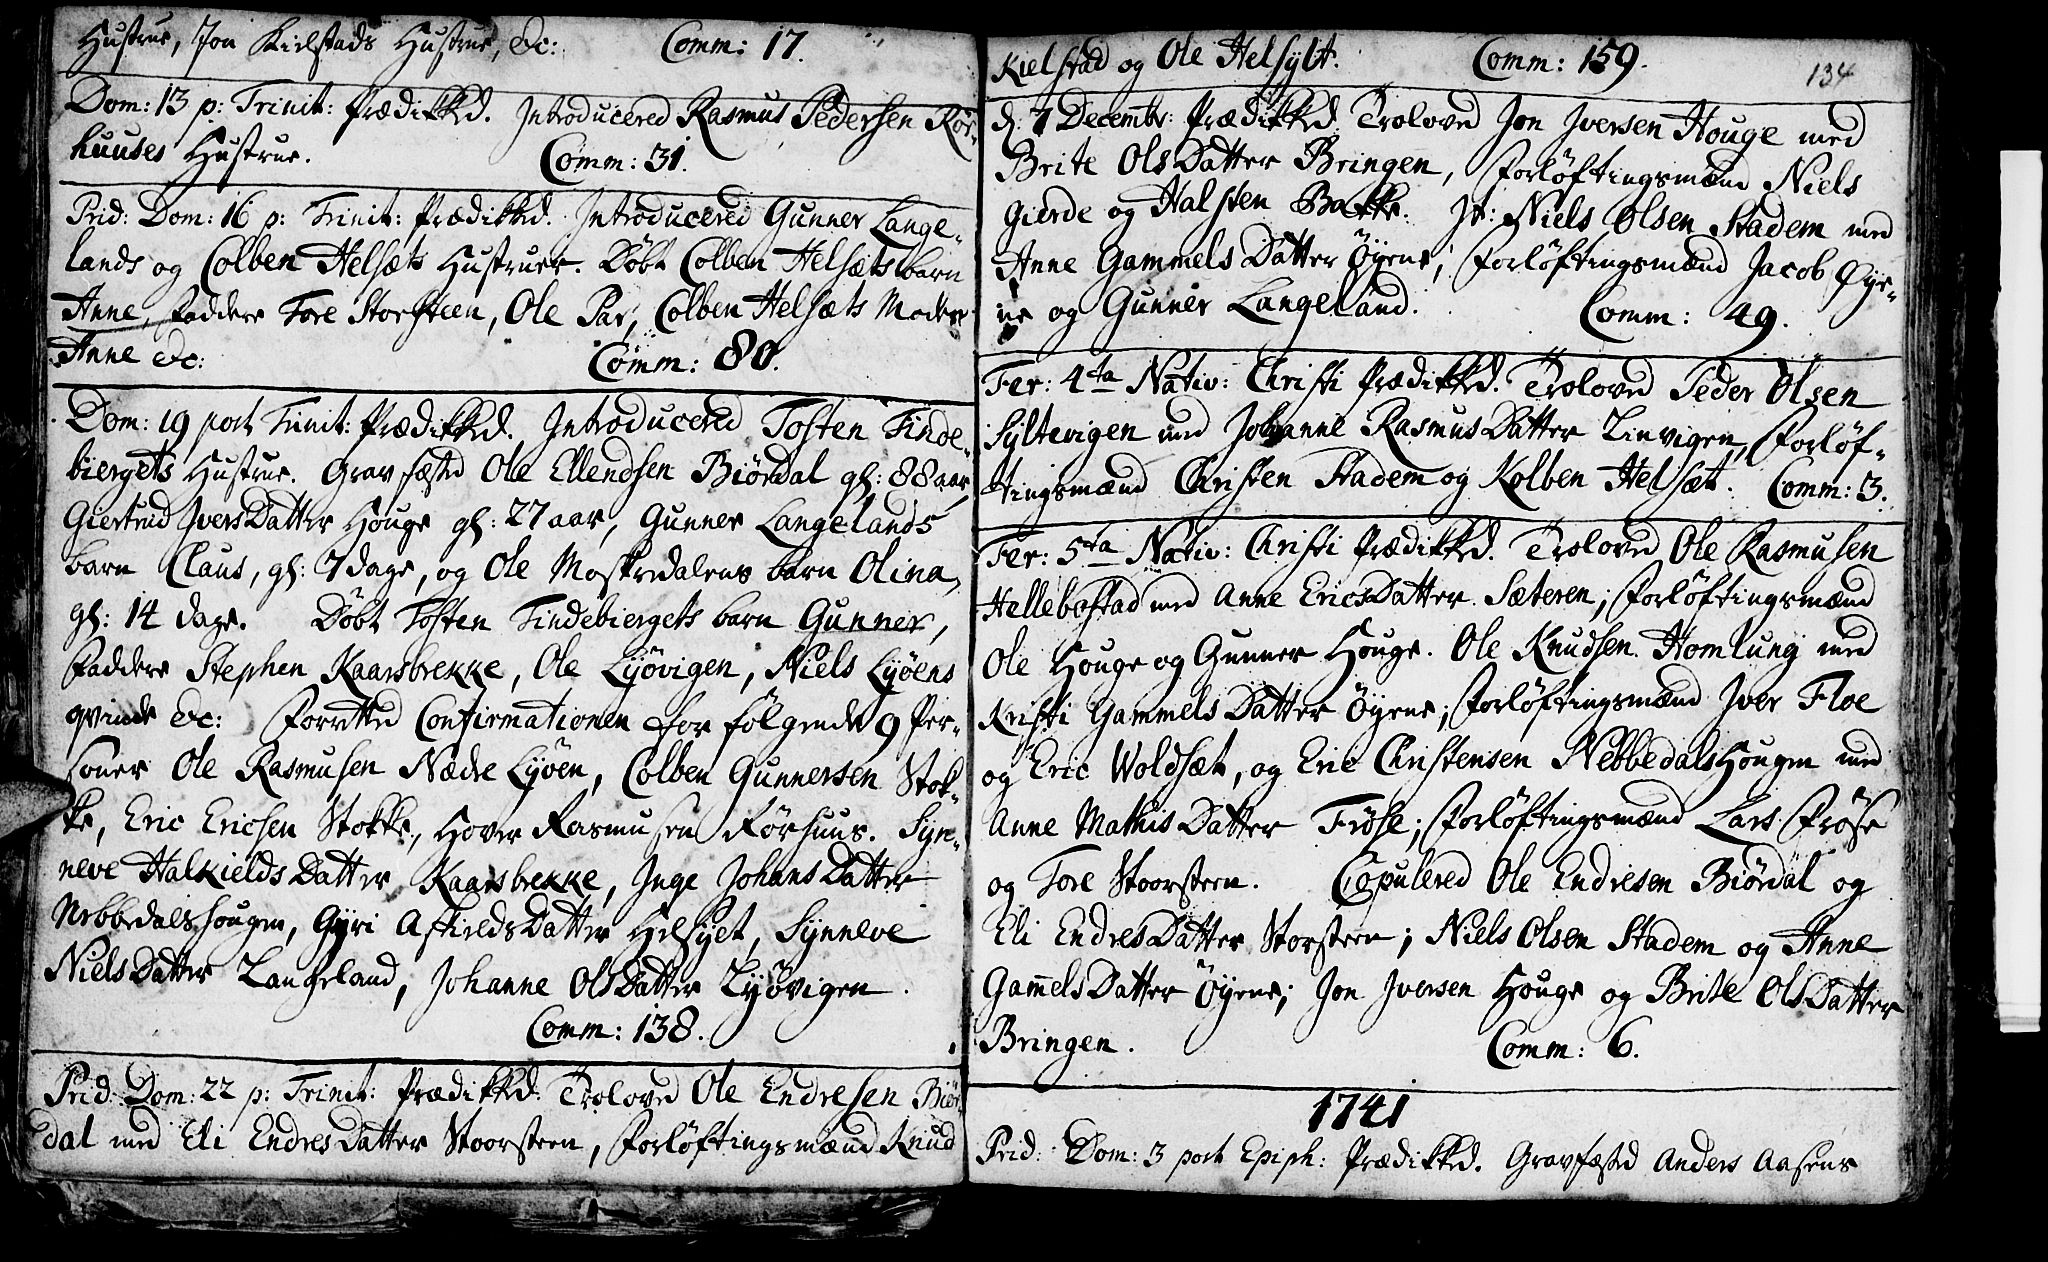 Hustrue, Jon Kielstads Hustrue, &c: Comm: 17.
Dom: 13 p: Trinit: Prædikked. Introducered Rasmus Pedersen Rör-
huuses Hustrue. Comm: 31.
Prid: Dom: 16 p: Trinit: Prædikked. Introducered Gunner Lange-
lands og Colben Helsæts Hustruer. Döbt Colben Helsæts barn
Anne, Faddere Tore Storsteen, Ole Par, Colben Helsæts Moder
Anne &c: Comm: 80.
Dom: 19 post Trinit: Prædikked. Introducered Tosten Finde-
biergets Hustrue. Gravfæsted Ole Ellendsen Biördal gl: 88 aar,
Giertrud IversDatter Houge gl: 27 aar, Gunner Langelands
barn Claus, gl: 7 dage, og Ole Moskredalens barn Olina,
gl: 14 dage. Döbt Tosten Findebiergets barn Gunner,
Faddere Stephen Kaarsbrekke, Ole Lyövigen, Niels Lyöens
qvinde &c: Forretted Confirmationen for fölgende 9 Per-
soner Ole Rasmusen Nædre Lyöen, Colben Gunnersen Stok-
ke, Eric Ericsen Stokke, Hover Rasmusen Rörhuus. Syn-
neve HalkieldsDatter Kaarsbrekke, Inge JohansDatter
Nebbedalshougen, Gyri AskieldsDatter Helsylt, Synneve
NielsDatter Langeland, Johanne OlsDatter Lyövigen.
Comm: 138.
Prid: Dom: 22 p: Trinit: Prædikked. Troloved Ole Endresen Biör-
dal med Eli EndresDatter Stoorsteen, Forlöftingsmænd Knud
Kielstad og Ole Helsylt. Comm: 159.
134
d. 7 Decembr: Prædikked. Troloved Jon Iversen Houge med
Brite OlsDatter Bringen, Forlöftingsmænd Niels
Gierde og Halsten Bakke. It: Niels Olsen Stadem med
Anne GammelsDatter Öyene, Forlöftingsmænd Jacob Öye-
ne og Gunner Langeland. Comm: 49.
Fer: 4ta Nativ: Christi Prædikked. Troloved Peder Olsen
Syltevigen med Johanne RasmusDatter Linvigen, Forlöf-
tingsmænd Christen Stadem og Kolben Helsæt. Comm: 3.
Fer: 5ta Nativ: Christi Prædikked. Troloved Ole Rasmusen
Hellebostad med Anne EricsDatter Sæteren; Forlöftingsmænd
Ole Houge og Gunner Houge. Ole Knudsen Homlung med
Kristi GammelsDatter Öyene; Forlöftingsmænd Iver Floe
og Eric Woldsæt, og Eric Christensen NebbedalsHougen med
Anne MathisDatter Fröse; Forlöftingsmænd Lars Fröse
og Tore Stoorsteen. Copulered Ole Endresen Biördal og
Eli EndresDatter Storsteen; Niels Olsen Stadem og Anne
GamelsDatter Öyene; Jon Iversen Houge og Brite OlsDatter
Bringen. Comm: 6.
1741
Prid: Dom: 3 post Epiph: Prædikked. Gravfæsted Anders Aasens